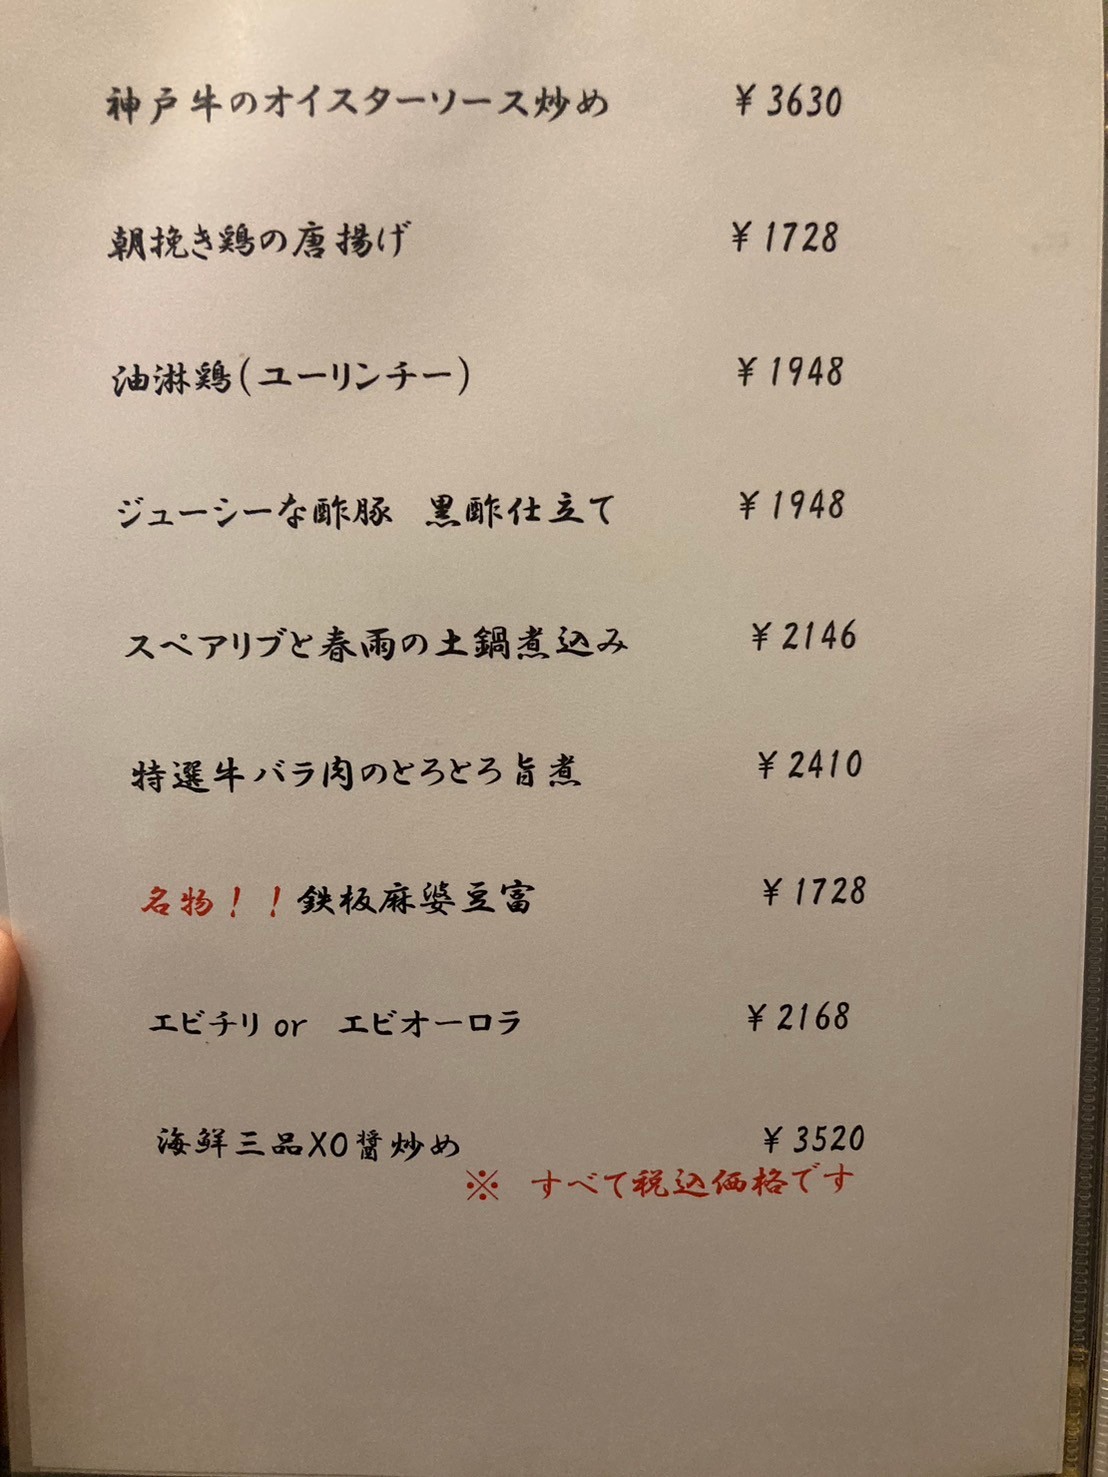 神戸牛のオイスターソース炒め ¥3630
朝挽き鶏の唐揚げ ¥1728
油淋鶏(ユーリンチー) ¥1948
ジューシーな酢豚 黒酢仕立て ¥1948
スペアリブと春雨の土鍋煮込み ¥2146
特選牛バラ肉のとろとろ旨煮 ¥2410
名物！！鉄板麻婆豆富 ¥1728
エビチリor エビオーロラ ¥2168
海鮮三品XO醤炒め ¥3520
※ すべて税込価格です